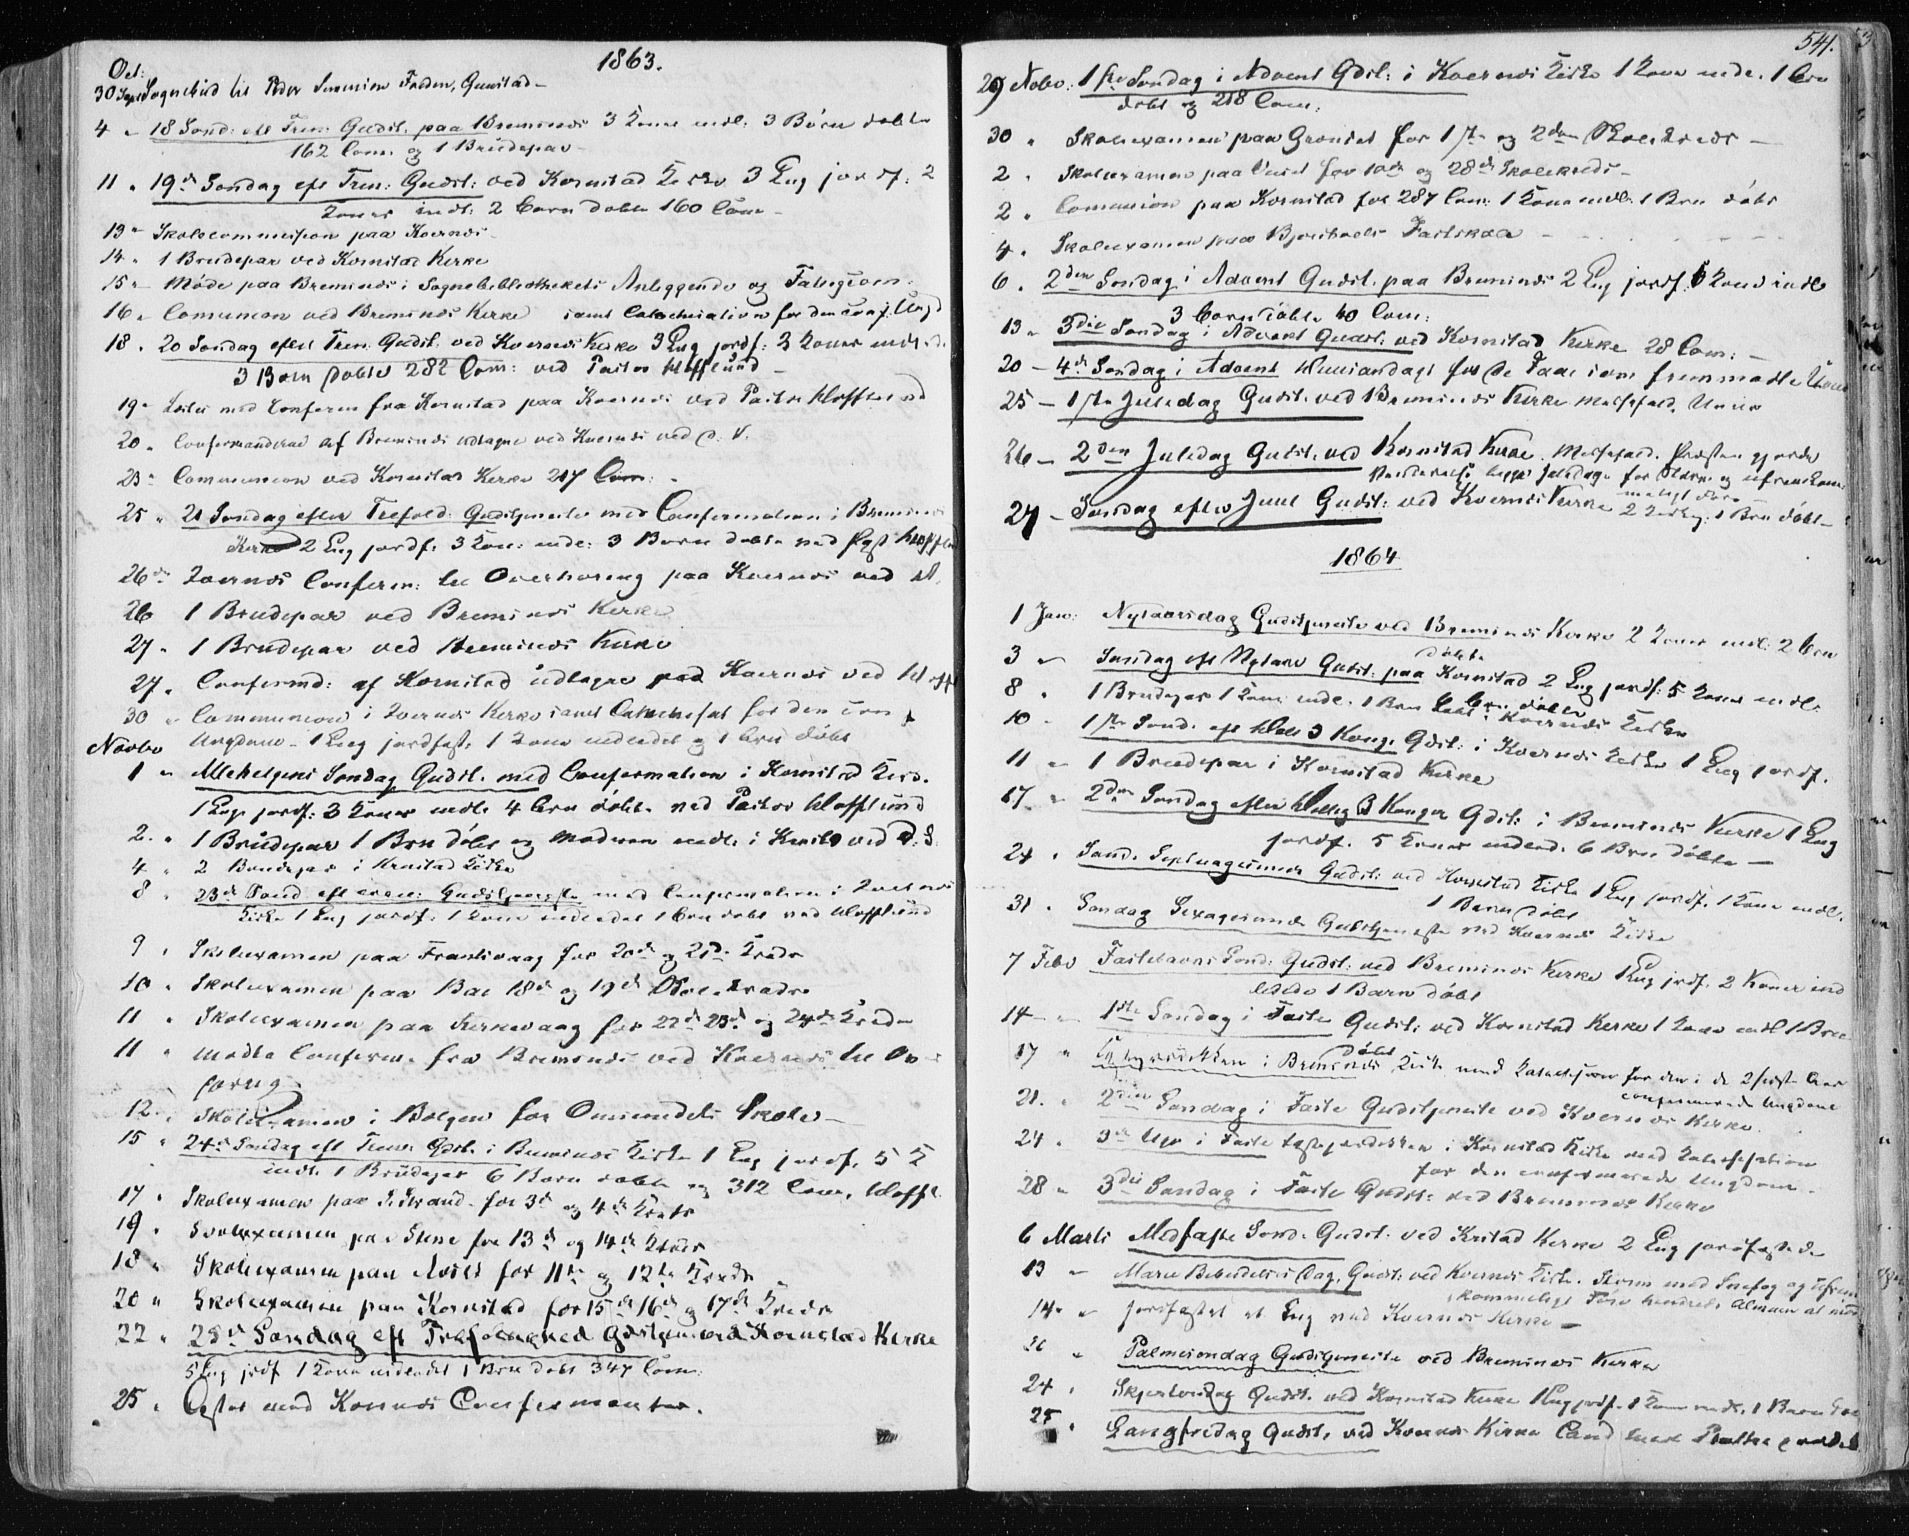 1863.
Oct:
30 Sept Sognebud til Peder
4 " 18 Sönd: eft Trin: Gudst. paa Bremsnes 3 Koner indl: 3 Börn döbte
162 Com: og 1 Brudepar
11 " 19de Söndag eft Trin: Gudst: ved Kornstad Kirke 3 Lig jordf: 2
Koner indl: 2 Börn döbte 160 Com
13 " Skolecommission paa Kvernes
14 " 1 Brudepar ved Kornstad Kirke
15 " Möde paa Bremsnes i Sognebibliothekets Anliggende og
16 " Comunion ved Bremsnes Kirke samt Catechisation for den Ungd
18 " 20 Söndag efter Trin: Gudst. ved Kvernes Kirke 3 Lig jordf: 3 Koner indl.
3 Börn döbte 282 Com: ved Pastor Klofflund
19 " med Conferm fra Kornstad paa Kvernes ved Pastor Klofflund
20 " Confirmanderne af Bremsnes udtagne ved Kvernes ved
23 " Communion ved Kornstad Kirke 217 Com:
25 " 21 Söndag efter Trefold: Gudstjeneste med Confirmation i Bremsnes
Kirke 2 Lig jordf: 3 Kon: indl: 3 Börn döbte ved Klofflund
26de Kvernes Conferm: til Overhöring paa Kvernes ved
26 1 Brudepar ved Bremsnes Kirke
27 " 1 Brudepar ved Bremsnes Kirke
27 " Confirmd: af Kornstad udtagne paa Kvernes ved Kloffl
30 " Communion i Kvernes Kirke samt Catechisat for den
Novbr Ungdom - 1 Lig jordfast, 1 Kone indledet og 1 Brn döbt
1 " Allehelgens Söndag Gudst. med Confirmation i Kornstad Kirk.
1 Lig jordf: 3 Koner indl. 4 Brn döbte ved Pastor Klofflund
2. " 1 Brudepar 1 Brn döbt og Moderen indl. i Kornstad ved
4 " 2 Brudepar i Kornstad Kirke
8 " 23de Sönd eft Gudstjeneste med Confirmation i Kvernes
Kirke 1 Lig jordf: 1 Kone indledet 1 Brn döbt ved Klofflund
9 " Skolexamen paa for 20de og 21de Kreds
10 " Skolexamen paa Bae 18de og 19de Skolekreds
11 " Skolexamen paa Kirkevaag for 22de 23de og 24de Kreds
11 " mödte Conferm. fra Bremsnes ved Kvernes til Over
höring
12. " Skolexamen i Bolgen for Skole
15 " 24de Söndag eft Trin: Gdst. i Bremsnes Kirke 1 Lig jordf. 5 K
indl. 1 Brudepar 6 Börn döbte og 312 Com. Kloffl
17 " Skolexamen paa for 3de og 4de Kreds
19 " Skolexamen paa Stene for 13de og 14de Kreds
18 " Skolexamen paa for 11te og 12te Kreds
20 " Skolexamen paa Kornstad for 15de 16de og 17de Kreds
22 " 25de Söndag eft Trefoldighed Gdstjen ved Kornstad Kirke
5 Lig jrdf 1 Kone indledet 1 Brn döbt 347 Com:
25 " med Confirmanter.
541.
29 Novbr: 1ste Söndag i Advent Gdst: i Kvernes Kirke 1 Kone indl. 1 Brn
döbt og 218 Com:
30 " Skolexamen paa Gröndet for 1ste og 2den Skolekreds
2 " Skolexamen paa for 10de og 28de Skolekreds
2 " Comunion paa Kornstad for 287 Com: 1 Kone indl. 1 Brn döbt
4 " Skolexamen paa Fastskole
6 " 2den Söndag i Advent Gudst. paa Bremsnes 2 Lig jordf. 6 Koner indl.
3 Börn döbte 40 Com:
13 " 3die Söndag i Advent Gudst: ved Kornstad Kirke 28 Com:
20 - 4de Söndag i Advent for De Faae som fremmödte
25 - 1ste Juledag Gudst. ved Bremsnes Kirke Messefald,
26 - 2den Juledag Gudst. ved Kornstad Kirke. Messefald.
27 - Söndag efter Juul Gudst: ved Kvernes Kirke 1 Brn döbt
1864
1 Jan: Nytaarsdag Gudstjeneste ved Bremsnes Kirke 2 Koner indl: 2 Brn
döbte
3 " Söndag eft Nytaar Gudst. paa Kornstad 2 Lig jordf: 5 Koner indl.
6 Brn döbte
8 " 1 Brudepar 1 Kone indl. 1 Brn döbt i Kvernes Kirke
10 " 1ste Sönd. eft Hell 3 Kong. Gdst: i Kvernes Kirke 1 Lig jordf.
11 " 1 Brudepar i Kornstad Kirke
17 " 2den Söndag efter Hellig 3 Konger Gdst: i Bremsnes Kirke 1 Lig
jordf. 5 Koner indled. 6 Brn döbte
24 " Sönd. Septuagesima Gudst: ved Kornstad Kirke 1 Lig jordf. 1 Kone indl.
1 Barn döbt
31 " Söndag Sexagesima Gudstjeneste ved Kvernes Kirke
7 Febr Fastelavns Sönd: Gudst: ved Bremsnes Kirke 1 Lig jrdf. 2 Koner ind
ledede 1 Barn döbt
14 " 1ste Söndag i Faste Gudst: ved Kornstad Kirke 1 Kone indl 1 Brn
döbt
17 " i Bremsnes Kirke med Katechisation for den i de 2 sidste Aar
confirmerede Ungdom
21. " 2den Söndag i Faste Gudstjeneste ved Kvernes Kirke.
24 " 3die Uge i Faste Fasteprædiken i Kornstad Kirke med Katechisation
for den confirmerede Ungdom.
28 " 3die Söndag i Faste Gudst: ved Bremsnes Kirke
6 Marts Midfaste Sönd. Gudst: ved Kornstad Kirke 2 Lig jordfæstede
13 " Mariæ Bebudelses Dag, Gudst: ved Kvernes Kirke. Storm med Snefog og ufrem
kommeligt Före hindrede Almuen at möde
14 " jordfæstet et Lig ved Kvernes Kirke
20 " Palmesöndag Gudstjeneste ved Bremsnes Kirke
24 " Skjærtorsdag Gudst. ved Kornstad Kirke 1 Lig jordf. 1 Kone indl. 1 Barn döbt
25 " Langfredag Gudst. ved Kvernes Kirke Cand